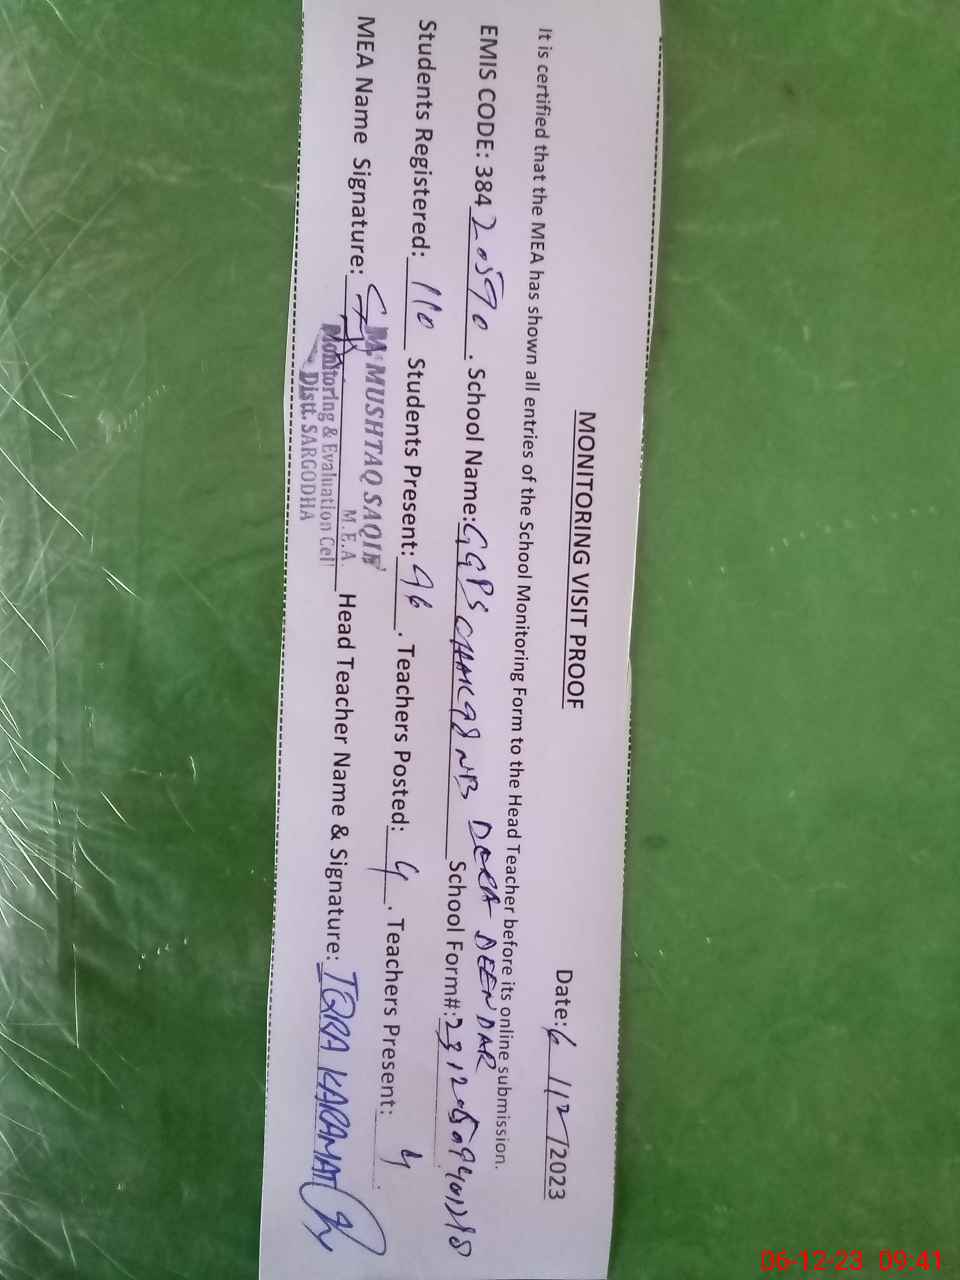 MONITORING VISIT PROOF
Date: 6/12/2023
It is certified that the MEA has shown all entries of the School Monitoring Form to the Head Teacher before its online submission.
EMIS CODE: 384 20570 . School Name: GGPS CHAK 98 NB DERA DEEN DAR School Form#:
Students Registered: 110 Students Present: 96 . Teachers Posted: 4 . Teachers Present: 4 .
MEA Name Signature: Head Teacher Name & Signature: IQRA KARAMAT
M. MUSHTAQ SAQIB
M.E.A
Monitoring & Evaluation Cell
Distt. SARGODHA
06-12-23 09:41